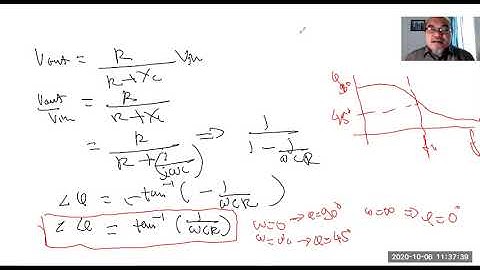 Vout = R / (R + Xc) Vin
Vout / Vin = R / (R + Xc)
= R / (R + (1 / jωC)) ⇒ 1 / (1 - j / ωCR)
∠φ = -tan⁻¹ (- 1 / ωCR)
∠φ = tan⁻¹ (1 / ωCR)
ω=0 → φ=90°
ω=∞ ⇒ φ=0°
φ=45°
φ
90°
45°
2020-10-06 11:37:39